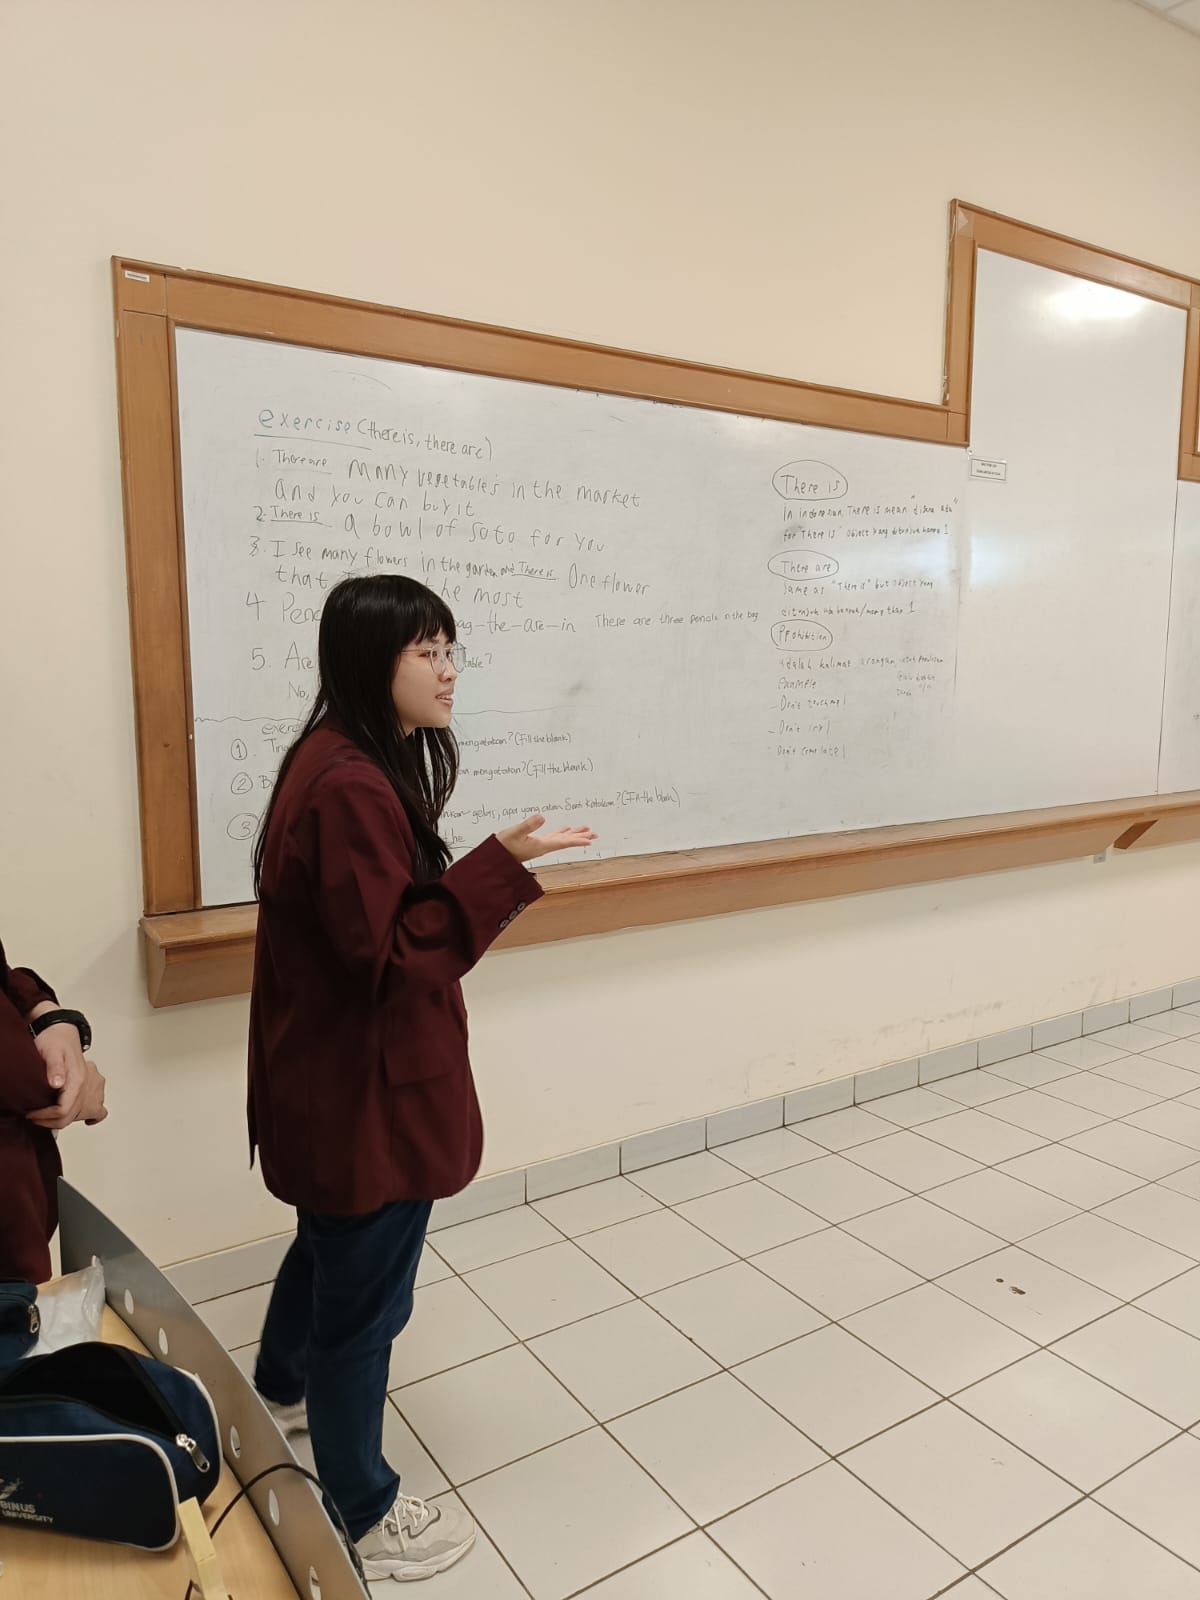 exercise (there is, there are)
1. There are many vegetables in the market
and you can buy it
2. There is a bowl of soto for you
3. I see many flowers in the garden and There is One flower
that the most
4 Penc bag-the-are-in There are three pencils in the bag
5. Are table?
No,
exerc
1 mengatakan? (Fill the blank)
2 mengatakan? (Fill the blank)
3 gelas, apa yang akan katakan? (Fill the blank)
the
There is
In indonesian, There is mean "disana ada"
for There is object yang ditunjuk hanya 1
There are
Same as "There is" but object yang
ditunjuk banyak/many than 1
Prohibition
adalah kalimat larangan
Example
- Don't touch me!
- Don't cry!
- Don't come late!
BINUS
UNIVERSITY